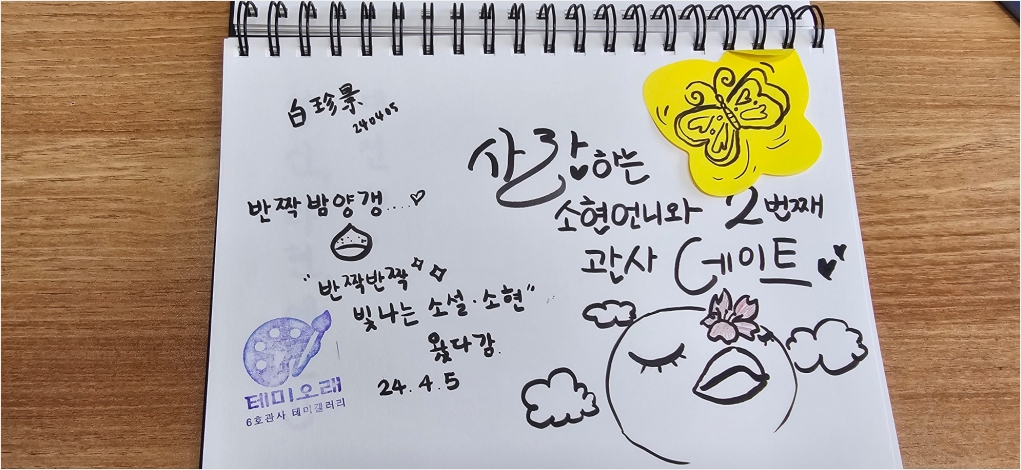 白珍景
240405
반짝밤양갱....♡
"반짝반짝
빛나는 소설·소현"
왔다감.
24.4.5
테미오래
6호관사 테미갤러리
사랑하는
소현언니와 2번째
관사 데이트